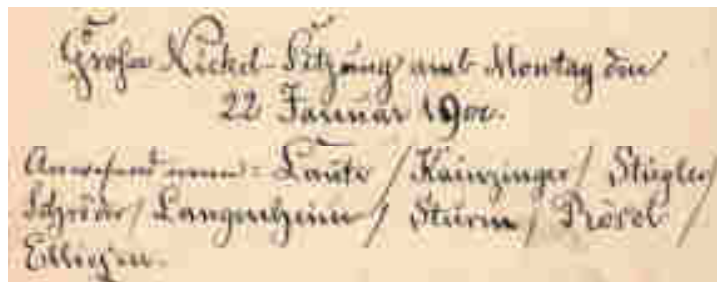 Große Nickel-Sitzung amb Montag den
22 Januar 1900.
Anwesend waren: Laute / Kainzinger / Stiegler /
Schröder / Langenheim / Sturm / Prösel /